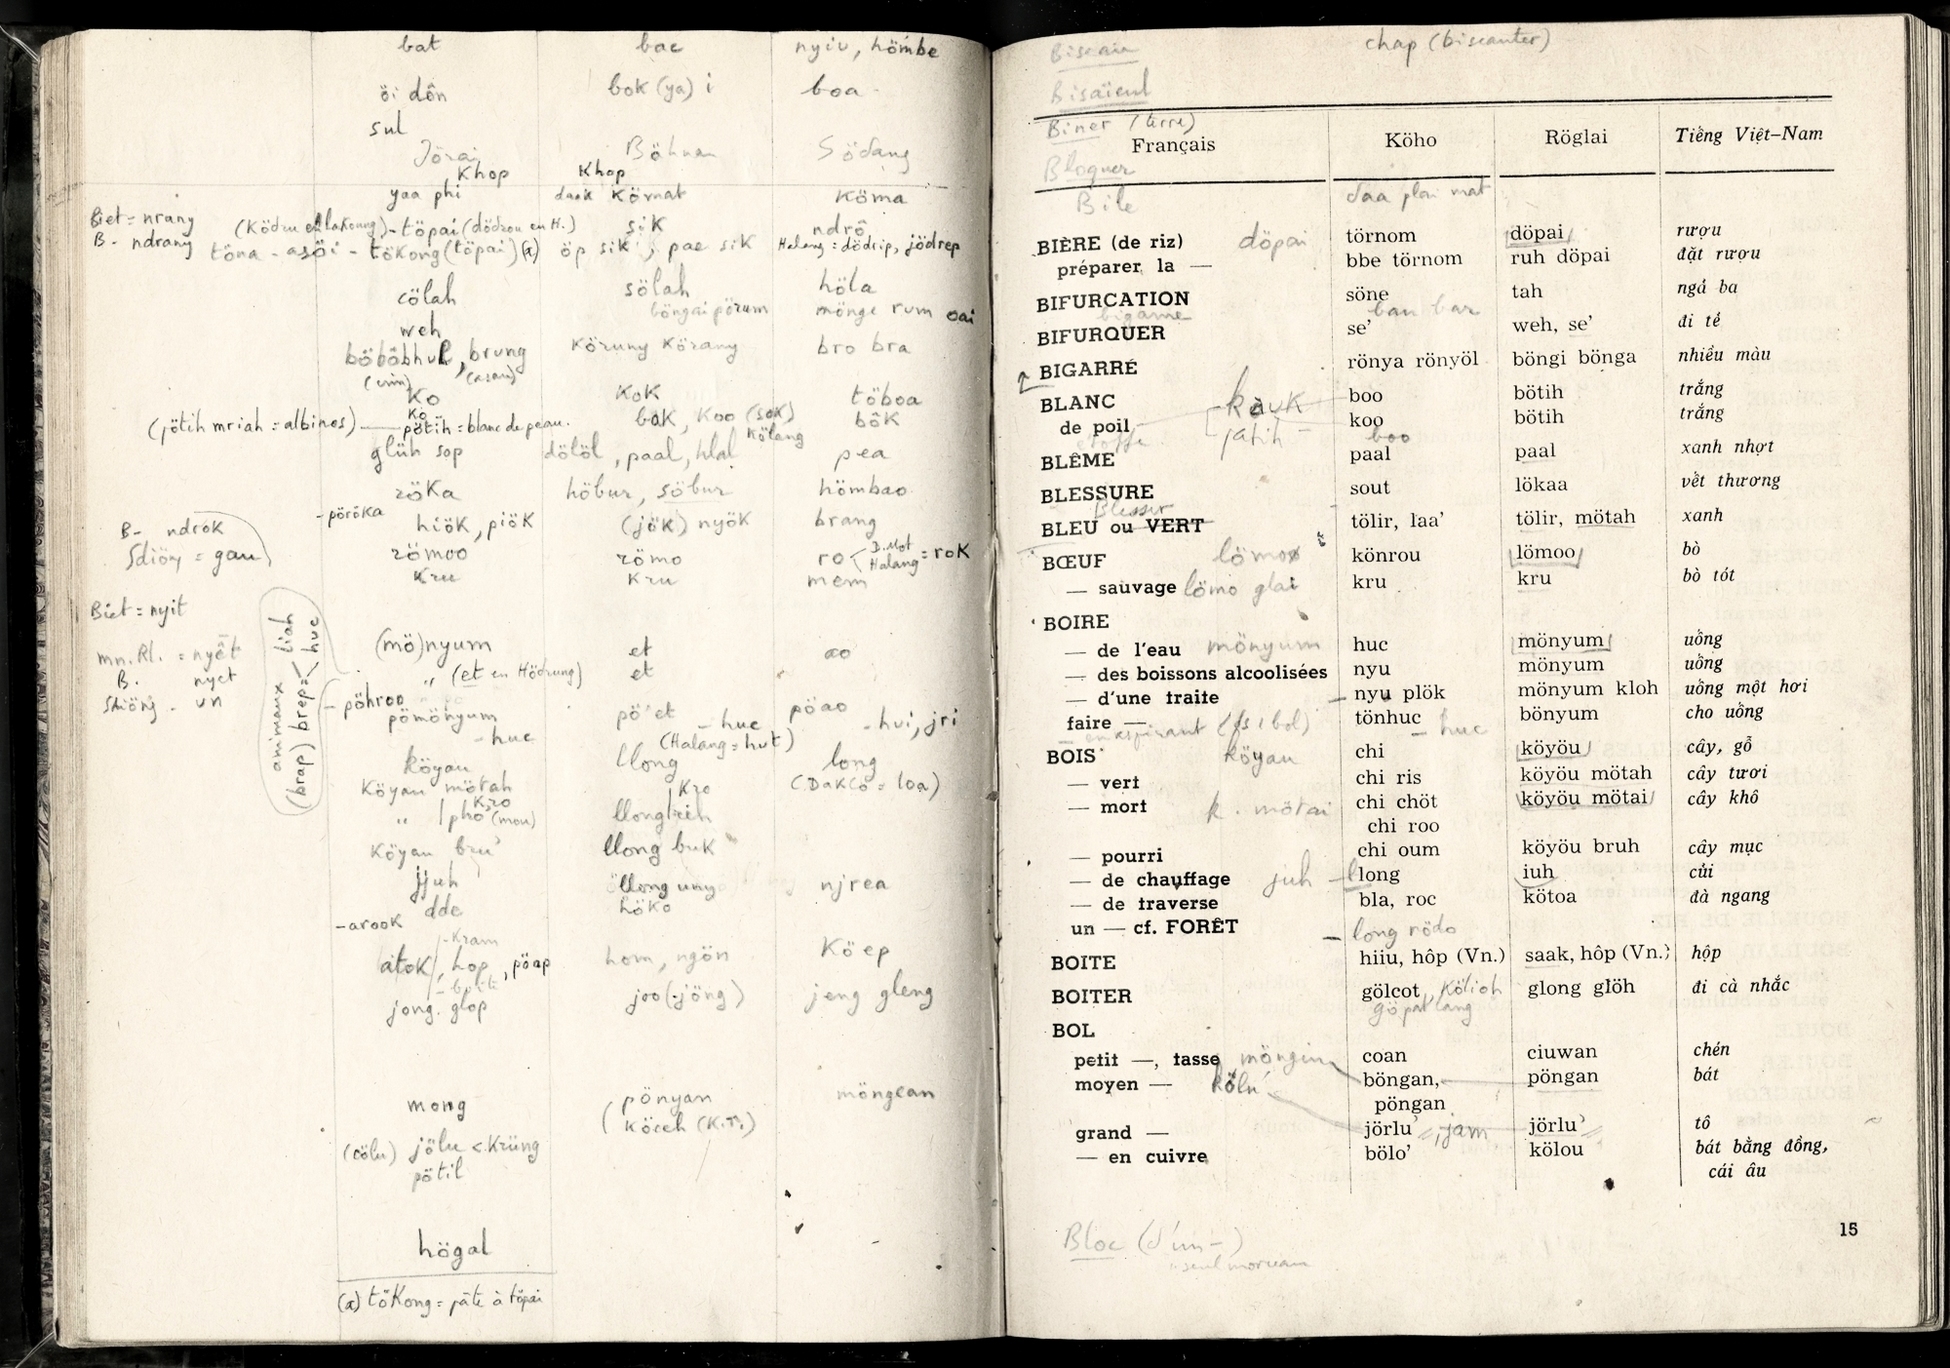 bat bac nyiu, hömbe
öi dôn bok (ya) i boa
sul
Jörai Böhnar Södang
Khop Khop
yaa phi daak Körnat Köma
Biet = nrany
B- ndrany
- töpai (dödrou en H.) sik ndrô
töna - asöi - tökong (töpai) (a) öp sik ; pae sik Halang = dödrip, jödrep
cölah sölah höla
böngai pörum mönge rum oai
weh
böbôbhul, brung köruny körany bro bra
(asau)
Ko KoK töboa
(jötih mriah = albinos) — Ko pötih = blanc de peau. bak, Koo (sok) bôk
Kölang
glüh sop dölöl, paal, hlal pea
röKa höbur, söbur hömbao
- pöröka
hiök, piök (jök) nyök brang
B- ndrök
Sdiöng = gau
römoo römo ro < D.Mot Halang = roK
Kru Kru mem
Biet = nyit
(mö)nyum et ao
" (et en Hödrung) et
mn. Rl. = nyêt
B. nyet
Stiöng - un
animaux (brap) brep < liah huc
- pöhroo
pömönyum pö et pöao
- huc - huc - hui, jri
(Halang = hut)
köyau llong long
Köyau mötah Kro (DaKCö = loa)
Kro
" | pho (mou) llong
Köyau bru' llong buk
jjuh llong uny njrea
dde hökö
- arook
- Kram
atok, hop, pöap hom, ngön Kö ep
jong. glop joo (-jöng) jeng gleng
mong pönyan möngcan
köceh (K.T.)
(cölu) jölu < Krüng
pötil
högal
(a) töKong = pâte à töpai
Biscain chap (biscanter)
Bisaïeul
Biner (terre)
Français Köho Röglai Tiếng Việt-Nam
Bloquer
Bile daa plai mat
BIÈRE (de riz) döpai törnom döpai rượu
préparer la — bbe törnom ruh döpai đặt rượu
BIFURCATION söne tah ngả ba
bigame bau bar
BIFURQUER se’ weh, se’ đi tẻ
BIGARRÉ rönya rönyöl böngi bönga nhiều màu
BLANC kauk boo bötih trắng
de poil jatih koo bötih trắng
étoffe boo
BLÊME paal paal xanh nhợt
BLESSURE sout lökaa vết thương
Blesser
BLEU ou VERT tölir, laa’ tölir, mötah xanh
BŒUF lömoo könrou lömoo bò
— sauvage lömo glai kru kru bò tót
BOIRE
— de l’eau mönyum huc mönyum uống
— des boissons alcoolisées nyu mönyum uống
— d’une traite nyu plök mönyum kloh uống một hơi
faire — tönhuc bönyum cho uống
— en aspirant (ds 1 bol) — huc
BOIS köyau chi köyöu cây, gỗ
— vert chi ris köyöu mötah cây tươi
— mort k. mötai chi chöt köyöu mötai cây khô
chi roo
— pourri chi oum köyöu bruh cây mục
— de chauffage juh long iuh củi
— de traverse bla, roc kötoa đà ngang
un — cf. FORÊT — long rödo
BOITE hiiu, hôp (Vn.) saak, hôp (Vn.) hộp
BOITER gölcot, Kölioh glong glöh đi cà nhắc
göpat lang
BOL
petit —, tasse möngin coan ciuwan chén
moyen — kölu böngan, pöngan bát
pöngan
grand — jörlu’, jam jörlu’ tô
— en cuivre bölo’ kölou bát bằng đồng,
cái âu
15
Bloc (d'un —)
" seul morceau